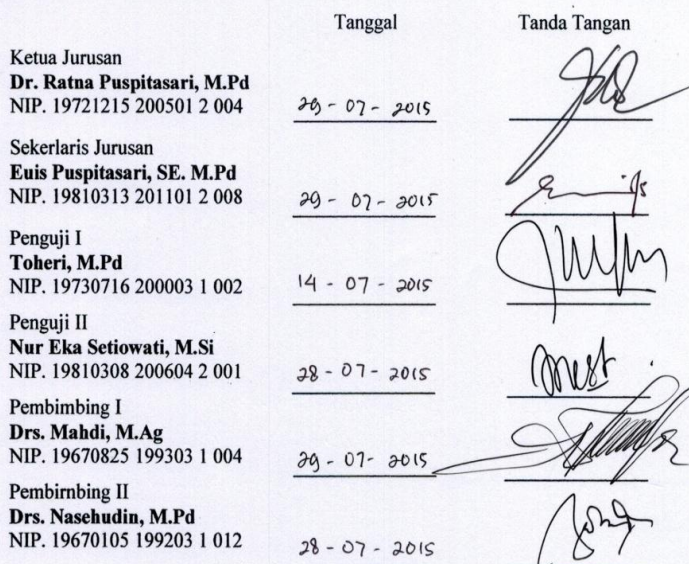 Tanggal Tanda Tangan
Ketua Jurusan
Dr. Ratna Puspitasari, M.Pd
NIP. 19721215 200501 2 004 29 - 07 - 2015
Sekerlaris Jurusan
Euis Puspitasari, SE. M.Pd
NIP. 19810313 201101 2 008 29 - 07 - 2015
Penguji I
Toheri, M.Pd
NIP. 19730716 200003 1 002 14 - 07 - 2015
Penguji II
Nur Eka Setiowati, M.Si
NIP. 19810308 200604 2 001 28 - 07 - 2015
Pembimbing I
Drs. Mahdi, M.Ag
NIP. 19670825 199303 1 004 29 - 07 - 2015
Pembirnbing II
Drs. Nasehudin, M.Pd
NIP. 19670105 199203 1 012 28 - 07 - 2015